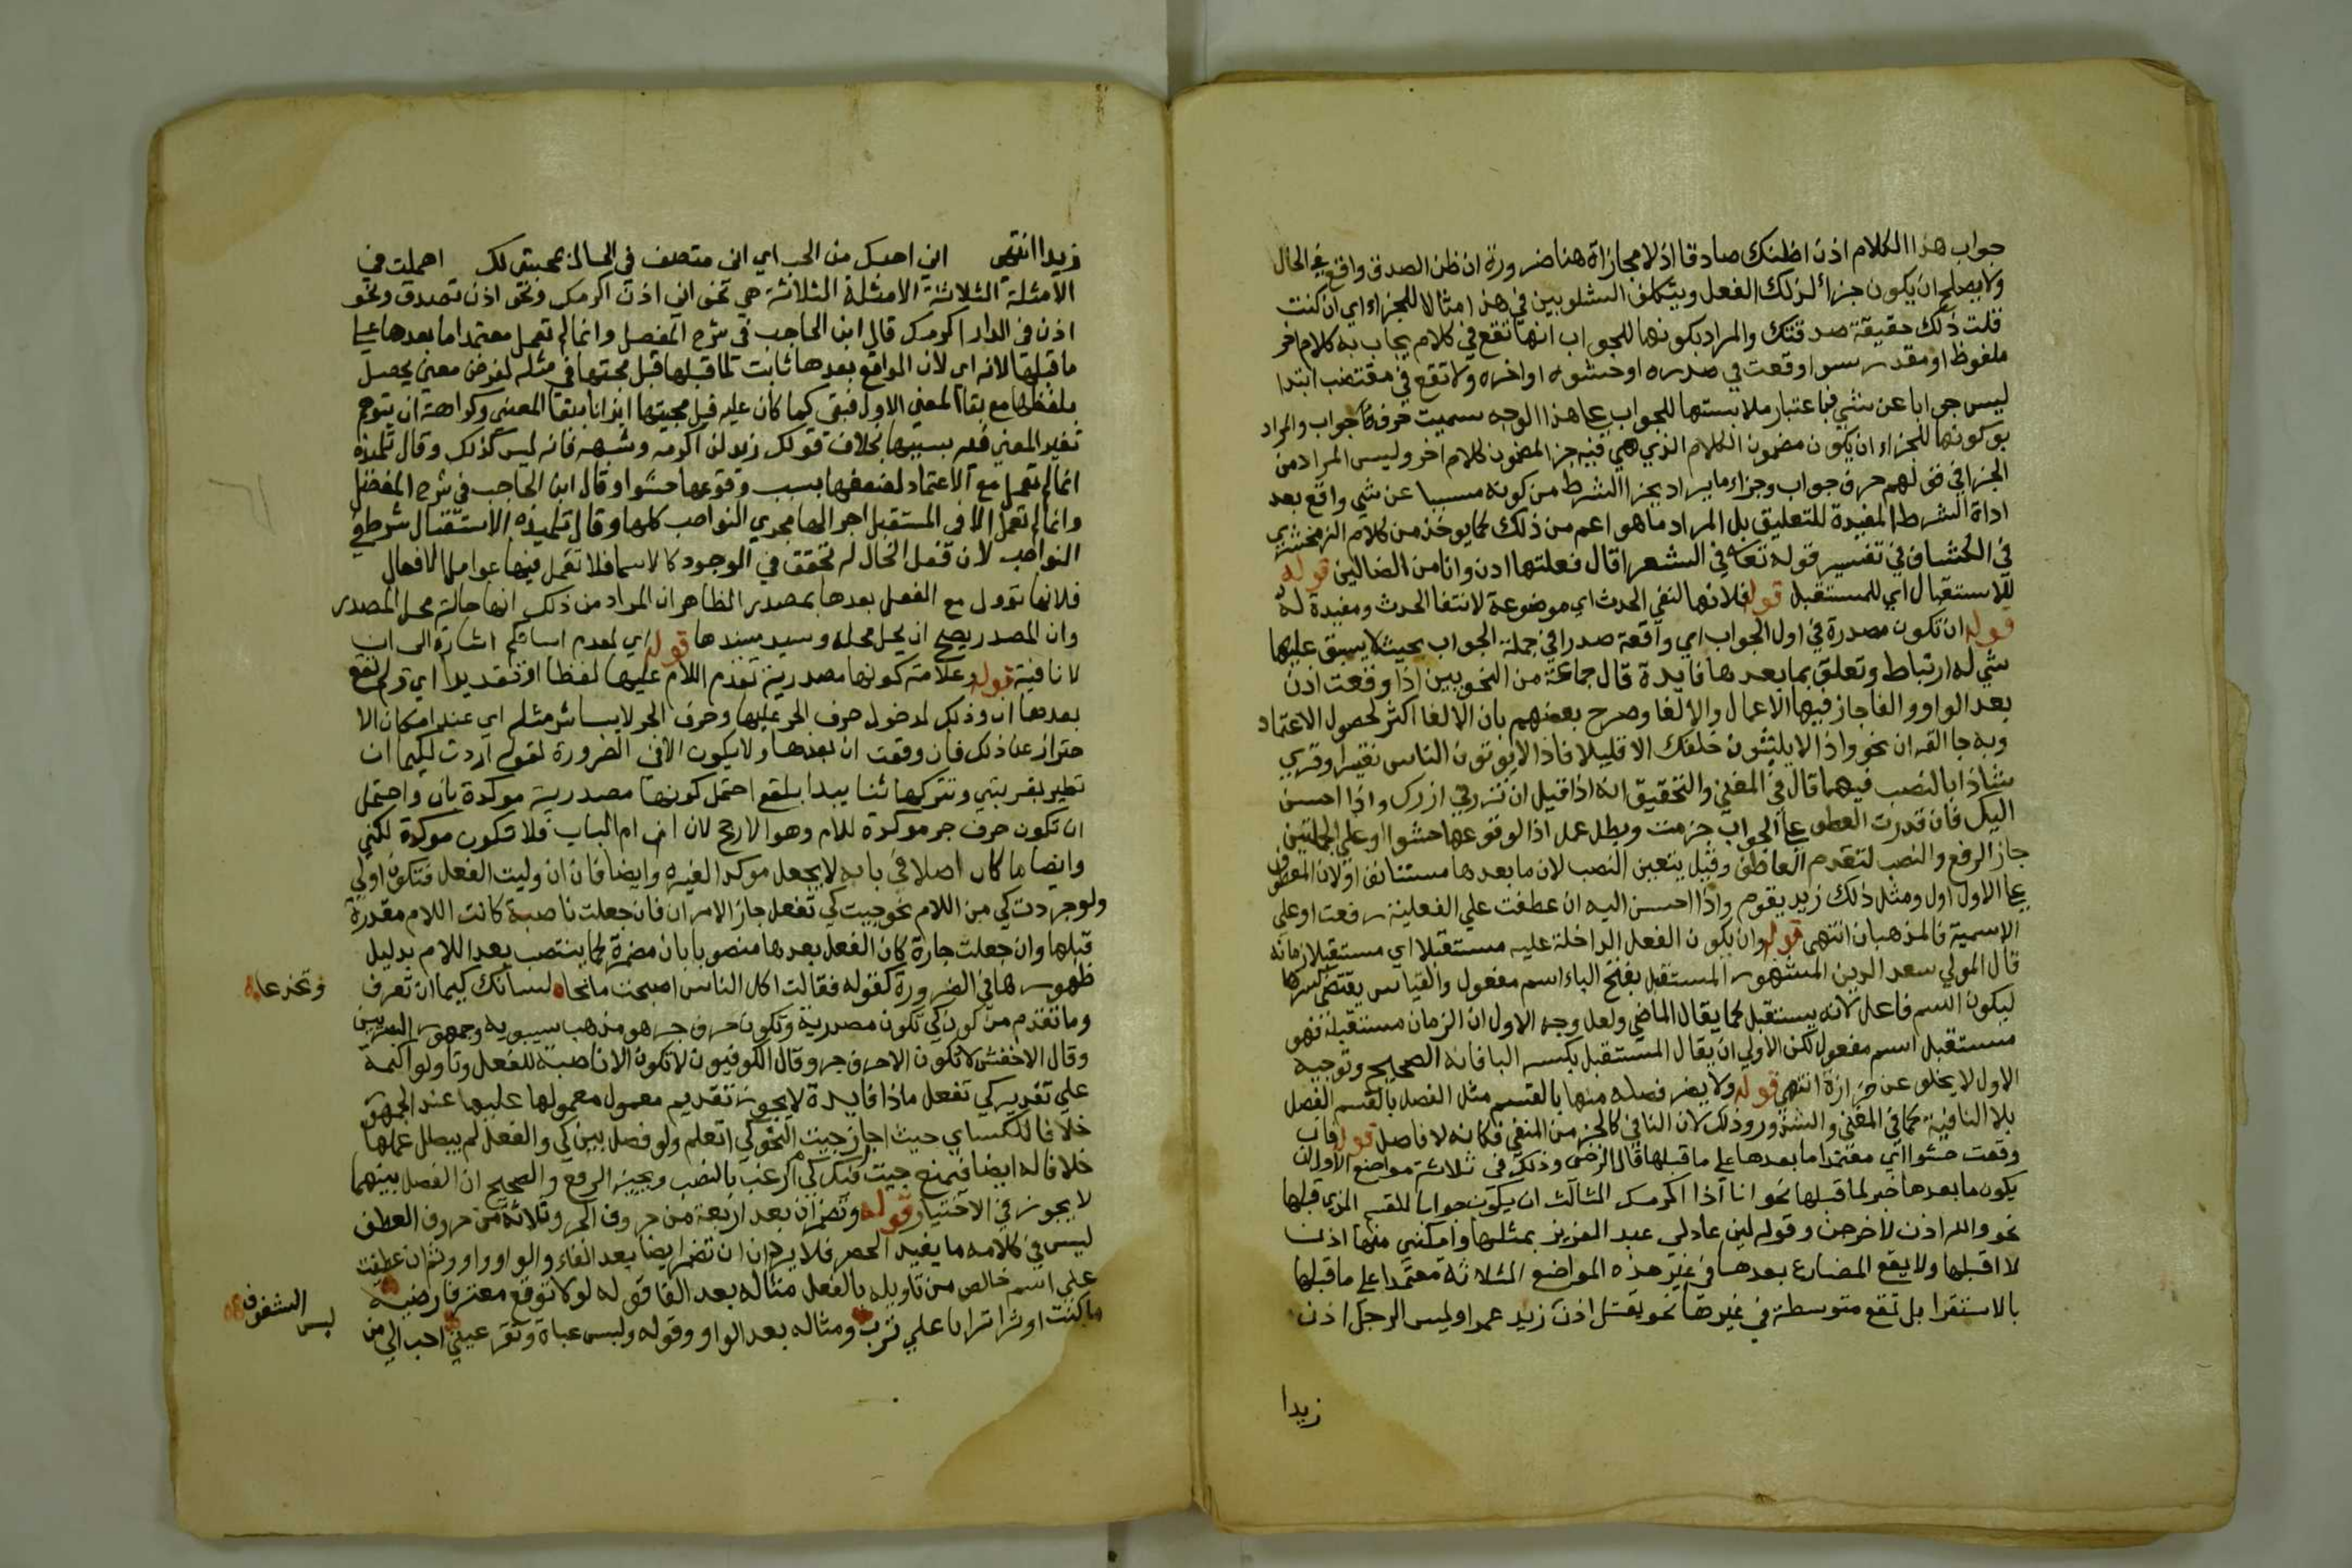 جواب هذا الكلام اذن اظنك صادقا اذ لا مجازاة هنا ضرورة ان ظن الصدق واقع في الحال
ولا يصلح ان يكون جزاء لذلك الفعل ويتكلف الشلوبين في هذا مثالا للجزاء اي ان كنت
قلت ذلك حقيقة صدقتك والمراد بكونها للجواب انها تقع في كلام يجاب به كلام اخر
ملفوظ او مقدر سوا وقعت في صدره او حشوه او اخره ولا تقع في مقتضب ابتدا
ليس جوابا عن شي فباعتبار ملابستها للجواب علي هذا الوجه سميت حرف جواب والمراد
بكونها للجزاء ان يكون مضمون الكلام الذي هي فيه جزا لمضمون كلام اخر وليس المراد من
الجزا في قولهم حرف جواب وجزاء ما يراد بجزا الشرط من كونه مسببا عن شي واقع بعد
اداة الشرط المفيدة للتعليق بل المراد ما هو اعم من ذلك كما يوخذ من كلام الزمخشري
في الكشاف في تفسير قوله تعالي في الشعرا قال فعلتها اذن وانا من الضالين قوله
للاستقبال اي للمستقبل قوله فلانها لنفي الحدث اي موضوعة لانتفا الحدث ومفيدة له
قوله ان تكون مصدرة في اول الجواب اي واقعة صدرا في جملة الجواب بحيث لا يسبق عليها
شي له ارتباط وتعلق بما بعدها فايدة قال جماعة من النحويين اذا وقعت اذن
بعد الواو والفا جاز فيها الاعمال والالغا وصرح بعضهم بان الالغا اكثر لحصول الاعتماد
وبه جا القران نحو واذا لا يلبثون خلفك الا قليلا فاذا لا يوتون الناس نقيرا وقري
شاذا بالنصب فيهما قال في المغني والتحقيق انه اذا قيل ان تزرني ازرك واذا احسن
اليك فان قدرت العطف علي الجواب جزمت وبطل عمل اذا لوقوعها حشوا او علي الجملتين
جاز الرفع والنصب لتقدم العاطف وقيل يتعين النصب لان ما بعدها مستانف او لان المعطوف
علي الاول اول ومثل ذلك زيد يقوم واذا احسن اليه ان عطفت علي الفعلية رفعت او علي
الاسمية فالمذهبان انتهي قوله وان يكون الفعل الداخلة عليه مستقبلا اي مستقبلا زمانه
قال المولي سعد الدين المشهور المستقبل بفتح الباء اسم مفعول والقياس يقتضي كسرها
ليكون اسم فاعل لانه يستقبل كما يقال الماضي ولعل وجه الاول ان الزمان مستقبله فهو
مستقبل اسم مفعول لكن الاولي ان يقال المستقبل بكسر البا فانه الصحيح وتوجيه
الاول لا يخلو عن حزازة انتهي قوله ولا يضر فصله منها بالقسم مثل الفصل بالقسم الفصل
بلا النافية كما في المغني والشذور وذلك لان النافي كالجز من المنفي فكانه لا فاصل قوله فان
وقعت حشوا اي معتمدا ما بعدها علي ما قبلها قال الرضي وذلك في ثلاثة مواضع الاول ان
يكون ما بعدها خبر لما قبلها نحو انا اذا اكرمك الثالث ان يكون جوابا للقسم الذي قبلها
نحو والله اذن لاخرجن وقوله لين عاد لي عبد العزيز بمثلها وامكنني منها اذن
لا اقيلها ولا يقع المضارع بعدها في غير هذه المواضع الثلاثة معتمدا علي ما قبلها
بالاستقرا بل تقع متوسطة في غيرها نحو يقتل اذن زيد عمرا وليس الرجل اذن
زيدا
زيدا انتهي اني احبك من الحب اي اني متصف في الحال بمحبتي لك اهملت في
الامثلة الثلاثة الامثلة الثلاثة هي نحو اني اذن اكرمك ونحو اذن تصدق ونحو
اذن في الدار اكرمك قال ابن الحاجب في شرح المفصل وانما لم تعمل معتمدا ما بعدها علي
ما قبلها لانه اي لان الواقع بعدها ثابت لما قبلها قبل مجيتها في مثله لغرض معني يحصل
بلفظها مع بقا المعني الاول فبقي كما كان عليه قبل مجيتها ايذانا ببقا المعني وكراهة ان يتوهم
تغير المعني فيه بسببها بخلاف قولك زيد لن اكرمه وشبهه فانه ليس كذلك وقال تلميذه
انما لم تعمل مع الاعتماد لضعفها بسبب وقوعها حشوا وقال ابن الحاجب في شرح المفصل
وانما لم تعمل الا في المستقبل اجرا لها مجري النواصب كلها وقال تلميذه الاستقبال شرط في
النواصب لان فعل الحال له تحقق في الوجود كالاسما فلا تعمل فيها عوامل الافعال
فلانها تؤول مع الفعل بعدها بمصدر الظاهر ان المراد من ذلك انها حالة محل المصدر
وان المصدر يصح ان يحل محله ويسد مسدها قوله اي لعدم اساتكم اشارة الي ان
لا نافية قوله وعلامة كونها مصدرية تقدم اللام عليها لفظا او تقديرا اي ولم تقع
بعدها ان وذلك لدخول حرف الجر عليها وحرف الجر لا يباشر مثله اي عند امكان الا
حتراز عن ذلك فان وقعت ان بعدها ولا يكون الا في الضرورة لقوله اردت لكيما ان
تطير بقربتي وتتركها شنا ببيدا بلقع احتمل كونها مصدرية موكدة بان واحتمل
ان تكون حرف جر موكدة للام وهو الارجح لان ان ام الباب فلا تكون موكدة لكي
وايضا ما كان اصلا في بابه لا يجعل موكدا لغيره وايضا فان ان وليت الفعل فتكون اولي
ولو جردت كي من اللام نحو جيت كي تفعل جاز الامران فان جعلت ناصبة كانت اللام مقدرة
قبلها وان جعلت جارة كان الفعل بعدها منصوبا بان مضمرة كما ينتصب بعد اللام بدليل
ظهورها في الضرورة كقوله فقالت اكل الناس اصبحت مانحا لسانك كيما ان تغر وتخدعا
وما تقدم من كون كي تكون مصدرية وتكون حرف جر هو مذهب سيبويه وجمهور البصريين
وقال الاخفش لا تكون الا حرف جر وقال الكوفيون لا تكون الا ناصبة للفعل وتاولوا كيمه
علي تقدير كي تفعل ماذا فايدة لا يجوز تقديم معمول معمولها عليها عند الجمهور
خلافا للكساي حيث اجاز جيت النحو كي اتعلم ولو فصل بين كي والفعل لم يبطل عملها
خلافا له ايضا فيمنع جيت كي فيك ارغب بالنصب ويجيز الرفع والصحيح ان الفصل بينهما
لا يجوز في الاختيار قوله وتضمر ان بعد اربعة من حروف الجر وثلاثة من حروف العطف
ليس في كلامه ما يفيد الحصر فلا يرد ان ان تضمر ايضا بعد الفاء والواو واو وثم ان عطفت
علي اسم خالص من تاويله بالفعل مثاله بعد الفا قوله لولا توقع معتر فارضيه
ما كنت اوثر اترابا علي ترب ومثاله بعد الواو وقوله ولبس عباة وتقر عيني احب الي من
لبس الشفوف